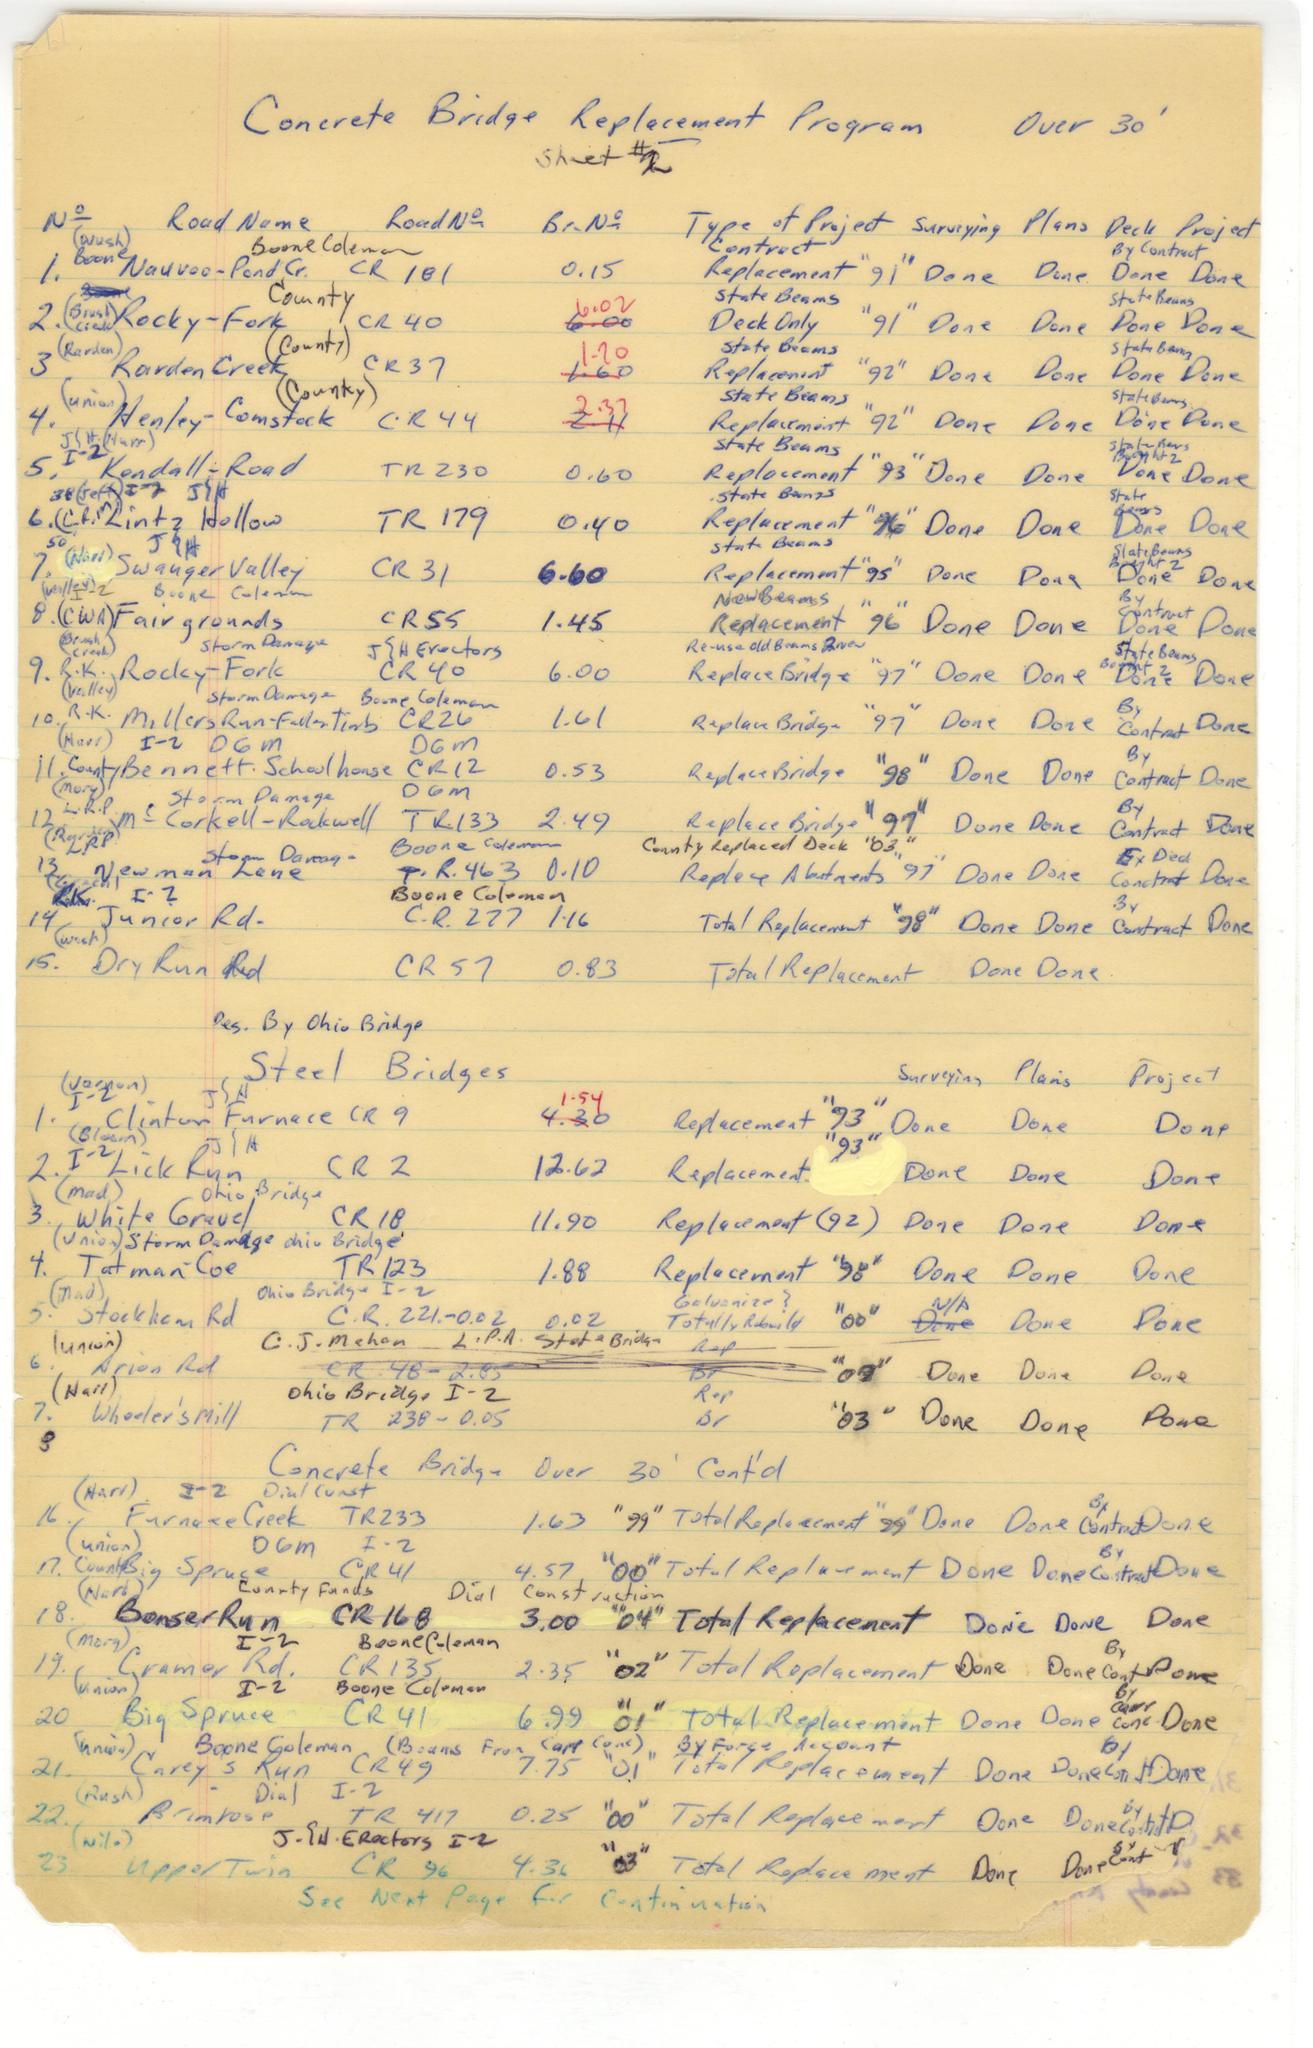 Concrete Bridge Replacement Program Over 30'
Sheet #2
No Road Name Road No Br. No Type of Project Surveying Plans Deck Project
(Rush) Boone Coleman Contract By Contract
1. Boone Nauvoo-Pond Cr. CR 181 0.15 Replacement "91" Done Done Done Done
County 6.02 State Beams State Beams
2. (Brush Creek) Rocky-Fork CR 40 6.00 Deck Only "91" Done Done Done Done
(Rarden) (County) 1.20 State Beams State Beam
3 Rarden Creek CR 37 1.60 Replacement "92" Done Done Done Done
(Union) (County) 2.37 State Beams State Beams
4. Henley-Comstock CR 44 Replacement "92" Done Done Done Done
J&H (Harr) I-2 State Beams State Bms Bought 2
5. Kendall-Road TR 230 0.60 Replacement "93" Done Done Done Done
38 (Jeff) I-2 J&H State Beams State Beams
6. Lintz Hollow TR 179 0.40 Replacement "96" Done Done Done Done
50' J&H State Beams State Beams Bought 2
7. (Harr) Swauger Valley CR 31 6.60 Replacement "95" Done Done Done Done
(Valley) I-2 Boone Coleman New Beams By Contract
8. (CWA) Fairgrounds CR 55 1.45 Replacement "96" Done Done Done Done
(Brush Creek) Storm Damage J&H Erectors Re-use old Beams State Beams Bought 2
9. R.K. Rocky-Fork CR 40 6.00 Replace Bridge "97" Done Done Done Done
(Valley) Storm Damage Boone Coleman By
10. R.K. Millers Run-Fallen Timb CR 26 1.61 Replace Bridge "97" Done Done Contract Done
(Harr) I-2 DGM DGM By
11. County Bennett. Schoolhouse CR 12 0.53 Replace Bridge "98" Done Done Contract Done
(Morg) L.R.P Storm Damage DGM By
12. Mc Corkell-Rockwell TR 133 2.49 Replace Bridge "97" Done Done Contract Done
LRP Storm Damage Boone Coleman County Replaced Deck "03" Ex Deck
13. Newman Lane T.R. 463 0.10 Replace Abutments "97" Done Done Contract Done
R.K. I-2 Boone Coleman By
14 Junior Rd. C.R. 277 1.16 Total Replacement "98" Done Done Contract Done
(Wash)
15. Dry Run Rd CR 57 0.83 Total Replacement Done Done
Des. By Ohio Bridge
Steel Bridges Surveying Plans Project
(Vernon) I-2 J&H 1.54
1. Clinton Furnace CR 9 4.30 Replacement "93" Done Done Done
(Bloom) I-2 J&H "93"
2. Lick Run CR 2 12.62 Replacement Done Done Done
(Mad) Ohio Bridge
3. White Gravel CR 18 11.90 Replacement (92) Done Done Done
(Union) Storm Damage Ohio Bridge
4. Tatman-Coe TR 123 1.88 Replacement "98" Done Done Done
(Mad) Ohio Bridge I-2 Galvanize & N/A
5. Stockham Rd C.R. 221-0.02 0.02 Totally Rebuild "00" Done Done Done
(Union) C.J. Mahan L.P.A. State Bridge Rep
6. Arion Rd CR 48-2.85 Br Done Done Done
(Harr) Ohio Bridge I-2 Rep
7. Wheeler's Mill TR 238-0.05 Br "03" Done Done Done
8
Concrete Bridge Over 30' Cont'd
(Harr) I-2 Dial Const By
16. Furnace Creek TR 233 1.63 "99" Total Replacement "99" Done Done Contract Done
(Union) DGM I-2 By
17. County Big Spruce CR 41 4.57 "00" Total Replacement Done Done Contract Done
(Harr) County Funds Dial Construction
18. Bonser Run CR 168 3.00 "04" Total Replacement Done Done Done
(Morg) I-2 Boone Coleman By
19. Cramer Rd. CR 135 2.35 "02" Total Replacement Done Done Cont Done
(Union) I-2 Boone Coleman By
20 Big Spruce CR 41 6.99 "01" Total Replacement Done Done Conc Done
(Union) Boone Coleman (Beams From Carr Conc) By Force Account By
21. Carey's Run CR 49 7.75 "01" Total Replacement Done Done Const Done
(Rush) Dial I-2 By
22. Brimrose TR 417 0.25 "00" Total Replacement Done Done D
(Nile) J.&H. Erectors I-2 By
23 Upper Twin CR 96 4.36 "03" Total Replacement Done Done Cont
See Next Page for Continuation